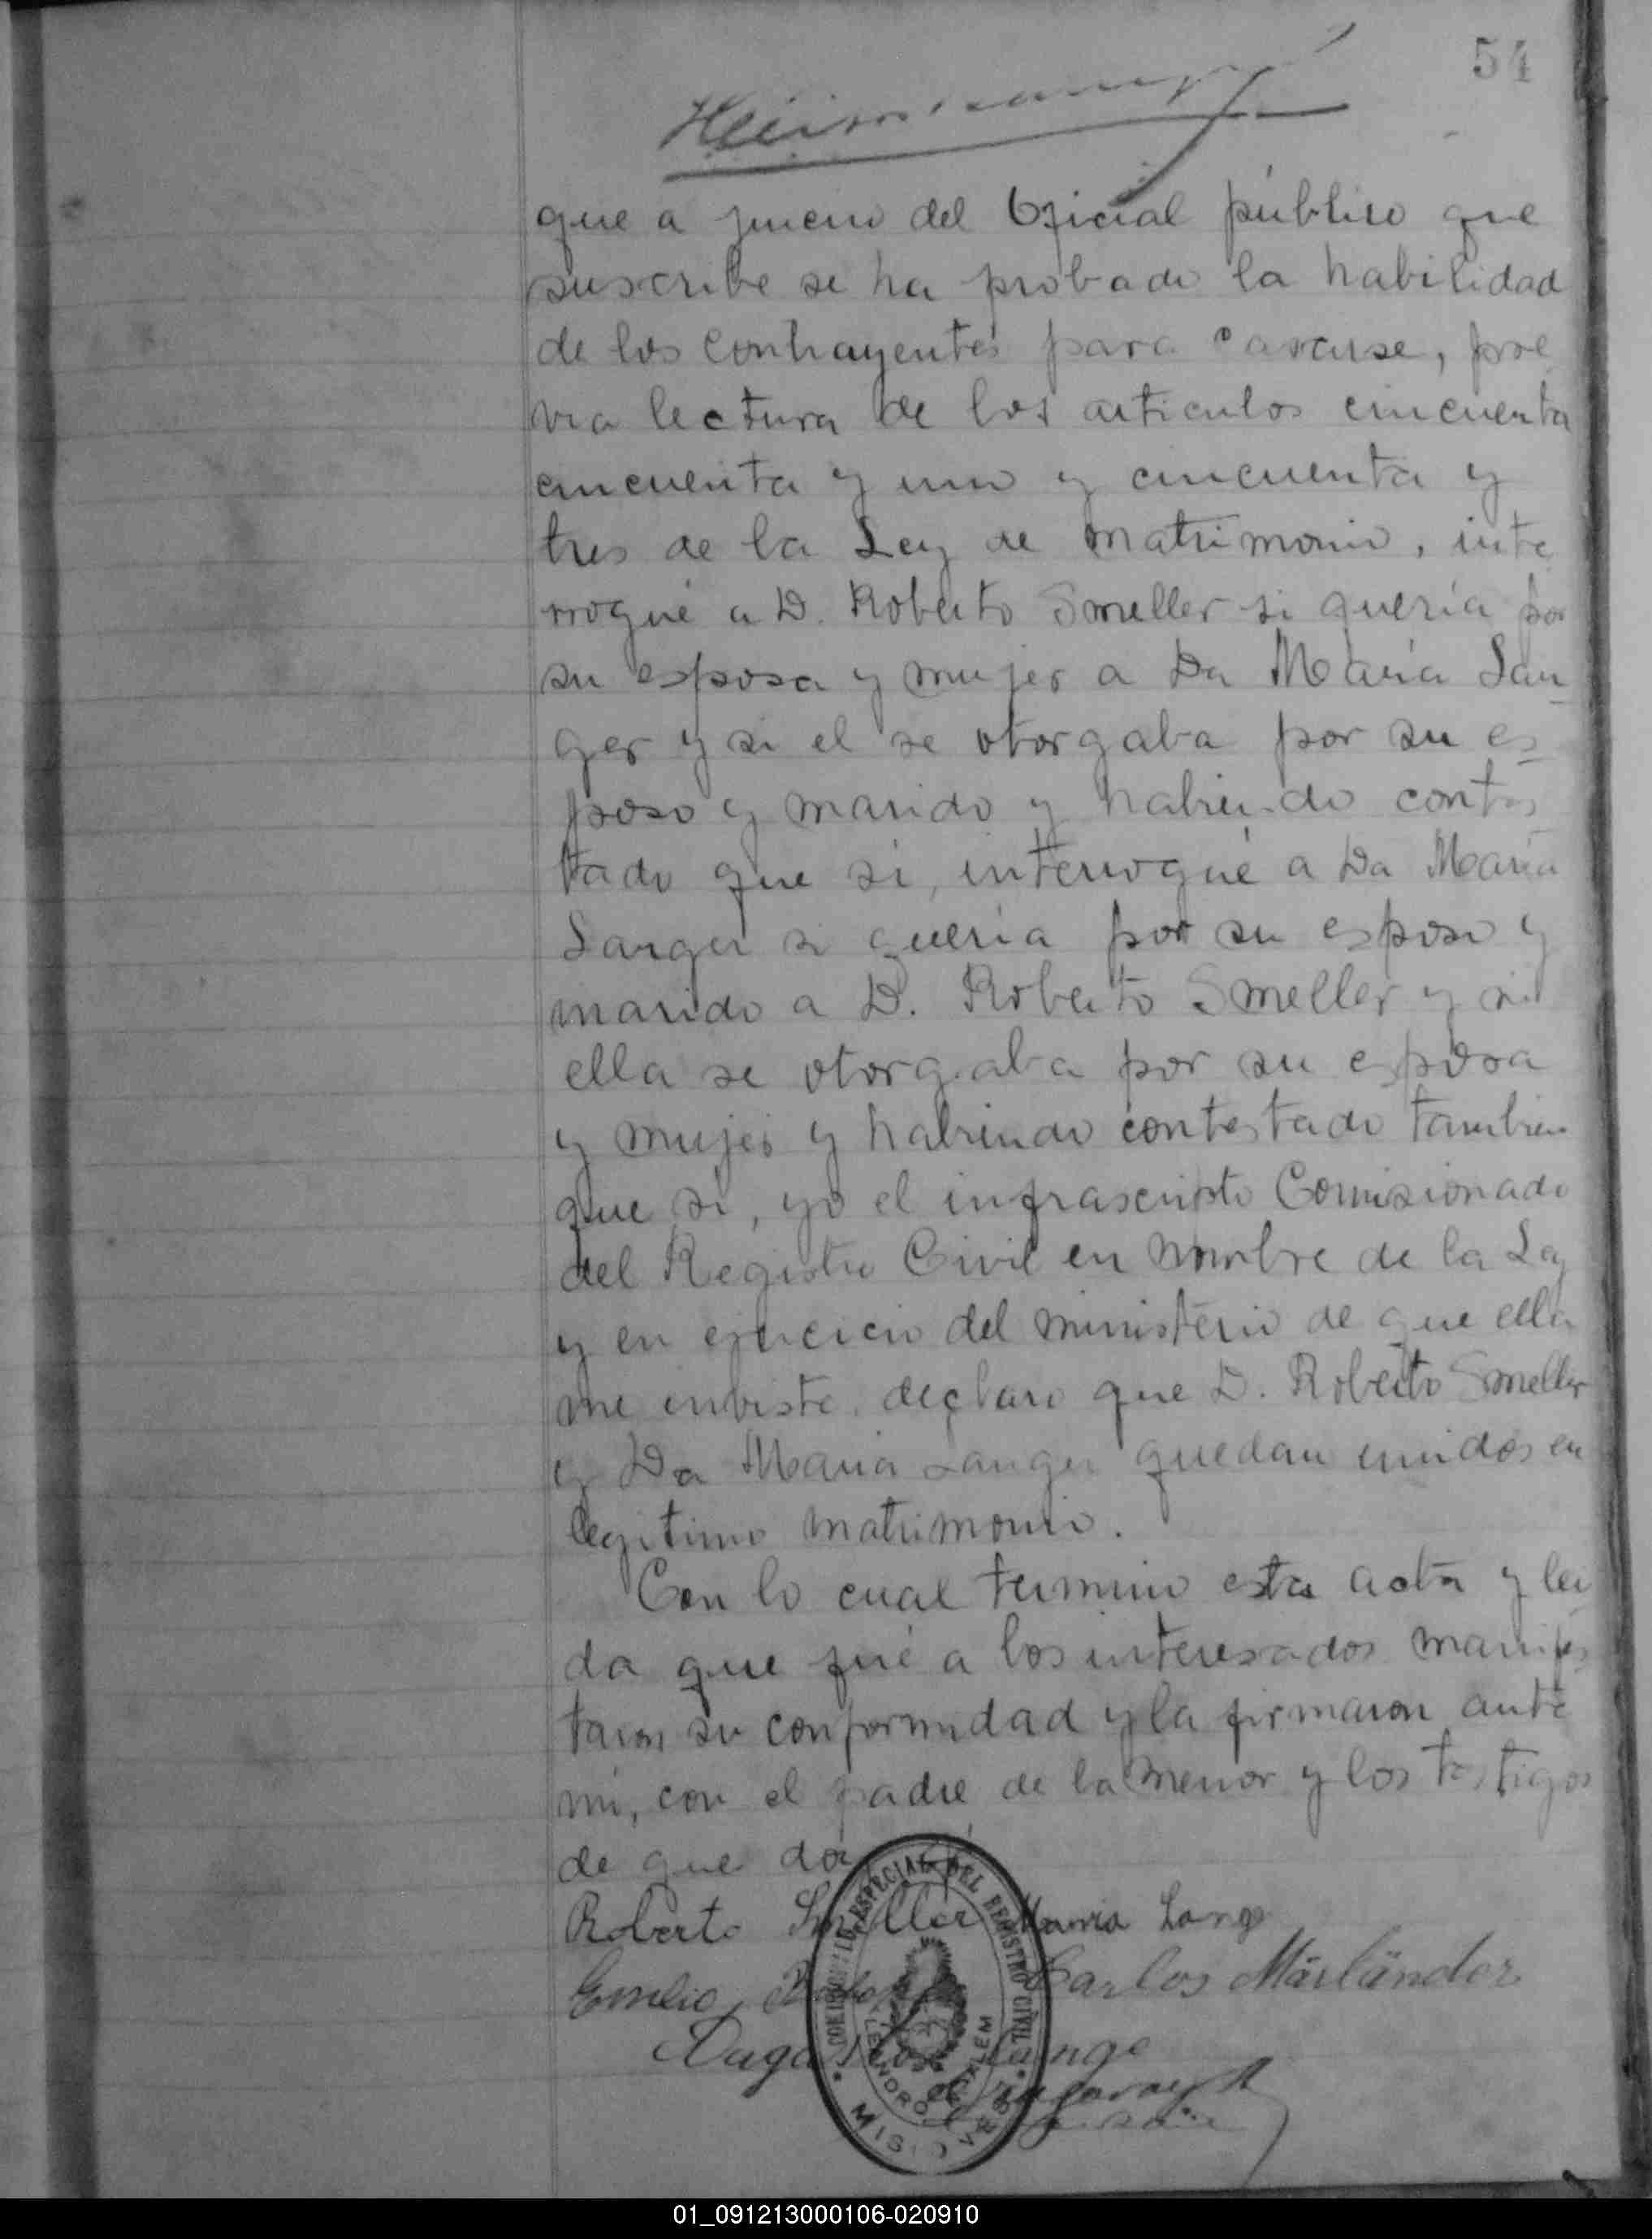 54
que a juicio del Oficial público que
suscribe se ha probado la habilidad
de los contrayentes para casarse, pre
via lectura de los articulos cincuenta
cincuenta y uno y cincuenta y
tres de la Ley de matrimonio, inte
rrogué a D. Roberto Smeller si quería por
su esposa y mujer a Da María Lan
ger y si el se otorgaba por su es
poso y marido y habiendo contes
tado que si, interrogué a Da María
Langer si quería por su esposo y
marido a D. Roberto Smeller y si
ella se otorgaba por su esposa
y mujer y habiendo contestado tambien
que si, yo el infrascripto Comisionado
del Registro Civil en nombre de la Ley
y en ejercicio del ministerio de que ella
me enviste, declaro que D. Roberto Smeller
y Da Maria Langer quedan unidos en
legitimo matrimonio.
Con lo cual termino esta acta y lei
da que fué a los interesados manifes
taron su conformidad y la firmaron ante
mi, con el padre de la menor y los testigos
de que doi
Roberto Smeller Maria Lange
Emilio Carlos Märländer
Lange
ESPECIAL DEL REGISTRO CIVIL
LEANDRO ALEM
MISIONES
01_091213000106-020910